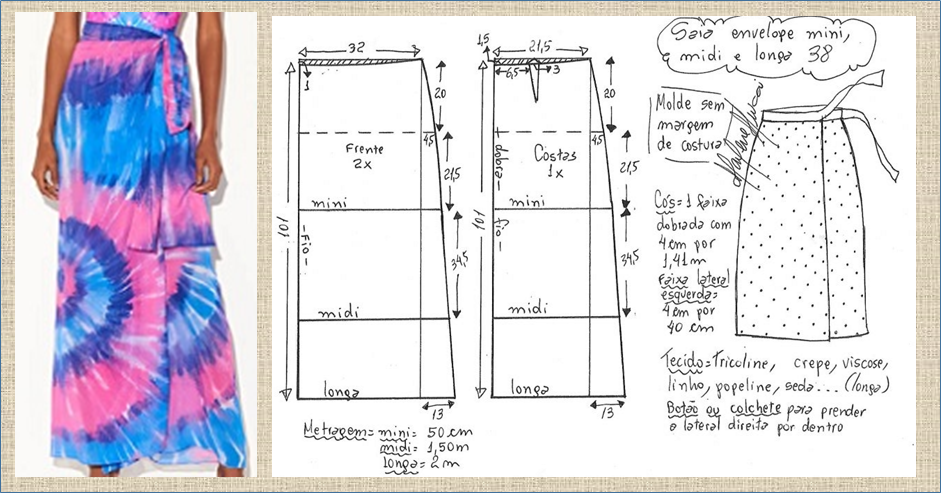 Saia envelope mini,
e midi e longa 38
Molde sem
margem
de costura
Cós = 1 faixa
dobrada com
4cm por
1,41m
Faixa lateral
esquerda=
4cm por
40 cm
Tecido = Tricoline, crepe, viscose,
linho, popeline, seda... (longa)
Botão ou colchete para prender
a lateral direita por dentro
32
1
20
4,5
Frente
2x
21,5
mini
101
- Fio -
34,5
midi
longa
13
1,5
21,5
6,5
3
20
4,5
dobra -
Costas
1x
21,5
mini
101
fio -
34,5
midi
longa
13
Metragem = mini = 50 cm
midi = 1,50m
longa = 2m